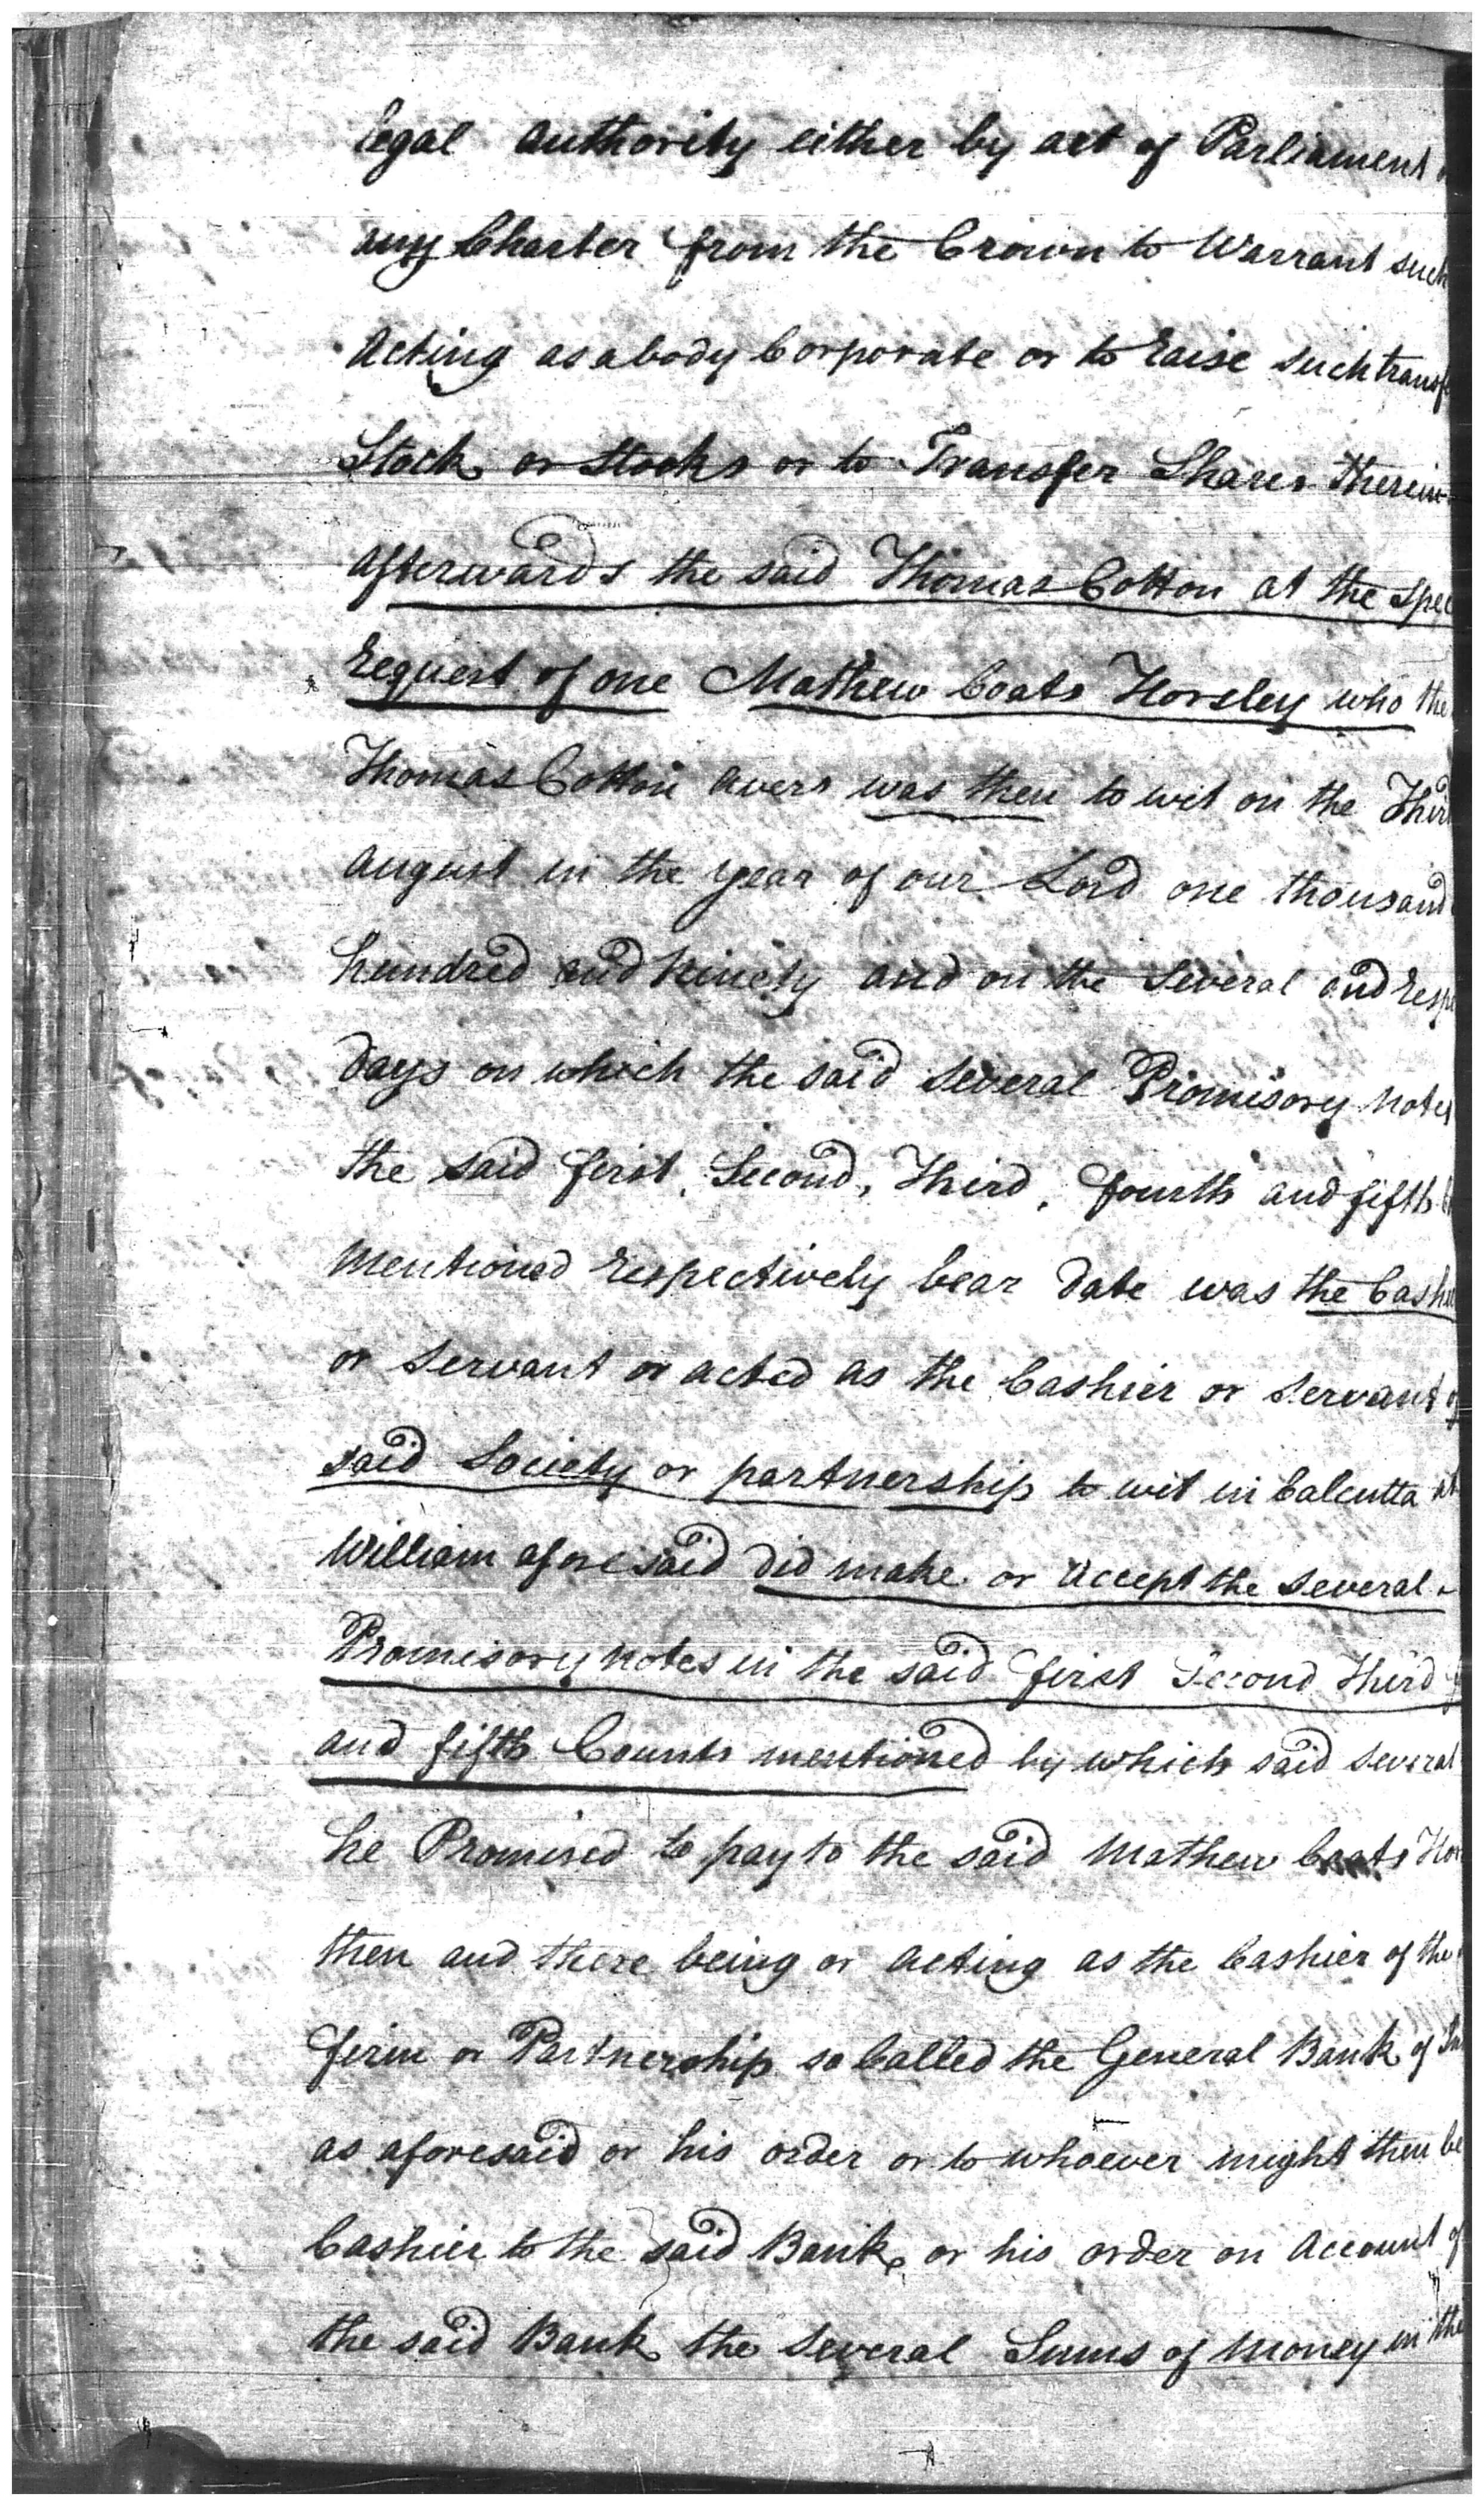 legal authority either by act of Parliament
any Charter from the Crown to Warrant such
Acting as a body Corporate or to raise such transf
Stock or Stocks or to Transfer Shares therein
afterwards the said Thomas Cotton at the spec
request of one Mathew Coats Horsley who the
Thomas Cotton avers was then to wit on the Third
August in the year of our Lord one thousand
hundred and Ninety and on the Several and respe
days on which the said Several Promisory Notes
the said first, Second, Third, fourth and fifth
Mentioned respectively bear date was the Cashie
or Servant or acted as the Cashier or Servant of
said Society or partnership to wit in Calcutta at
William aforesaid did make or Accept the several
Promisory notes in the said first Second third
and fifth Counts mentioned by which said several
he Promised to pay to the said Mathew Coats Hor
then and there being or acting as the Cashier of the
firm or Partnership so Called the General Bank of In
as aforesaid or his order or to whoever might then be
Cashier to the said Bank or his order on Account of
the said Bank the Several Sums of Money in the